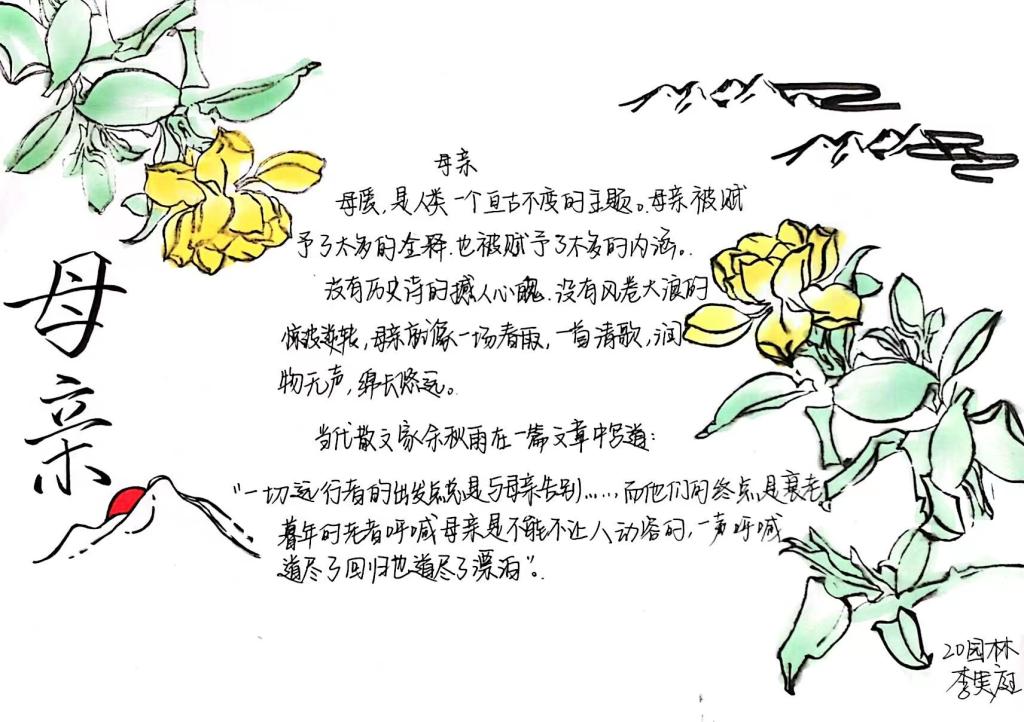 母亲
母亲
母爱,是人类一个亘古不变的主题。母亲被赋
予了太多的诠释.也被赋予了太多的内涵。.
没有历史诗的撼人心魄.没有风卷大浪的
惊波逆转,母亲就像一场春雨,一首清歌,润
物无声,绵长悠远。
当代散文家余秋雨在一篇文章中写道:
"一切远行者的出发点总是与母亲告别......而他们的终点是衰老
暮年的老者呼喊母亲是不能不让人动容的,一声呼喊
道尽了回归也道尽了漂泊"。
20园林
李 庭